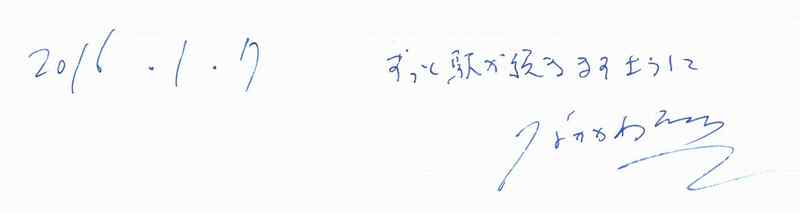 2016.1.7
ずっと駅が続きますように